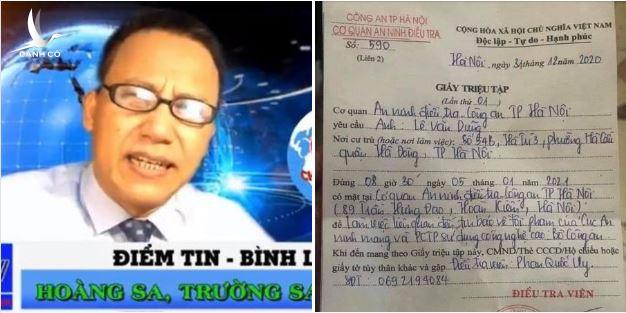 DANCO
ĐIỂM TIN - BÌNH L
HOÀNG SA, TRƯỜNG SA
CÔNG AN TP HÀ NỘI
CƠ QUAN AN NINH ĐIỀU TRA
Số: 590
(Liên 2)
CỘNG HÒA XÃ HỘI CHỦ NGHĨA VIỆT NAM
Độc lập - Tự do - Hạnh phúc
Hà Nội, ngày 31 tháng 12 năm 2020
GIẤY TRIỆU TẬP
(Lần thứ 01)
Cơ quan An ninh điều tra Công an TP Hà Nội
yêu cầu Anh: Lê Văn Dũng
Nơi cư trú (hoặc nơi làm việc): Số 34B, Hà Trì 3, phường Hà Cầu
quận Hà Đông, TP Hà Nội
Đúng 08 giờ 30 ngày 05 tháng 01 năm 2021
có mặt tại Cơ quan An ninh điều tra Công an TP Hà Nội
(89 Trần Hưng Đạo, Hoàn Kiếm, Hà Nội)
để Làm việc liên quan đến tin báo về tội phạm của Cục An
ninh mạng và PCTP sử dụng công nghệ cao. Bộ Công an
Khi đến mang theo Giấy triệu tập này, CMND/Thẻ CCCD/Hộ chiếu hoặc
giấy tờ tùy thân khác và gặp Điều tra viên: Phan Quốc Uy.
SĐT: 0692194084
ĐIỀU TRA VIÊN